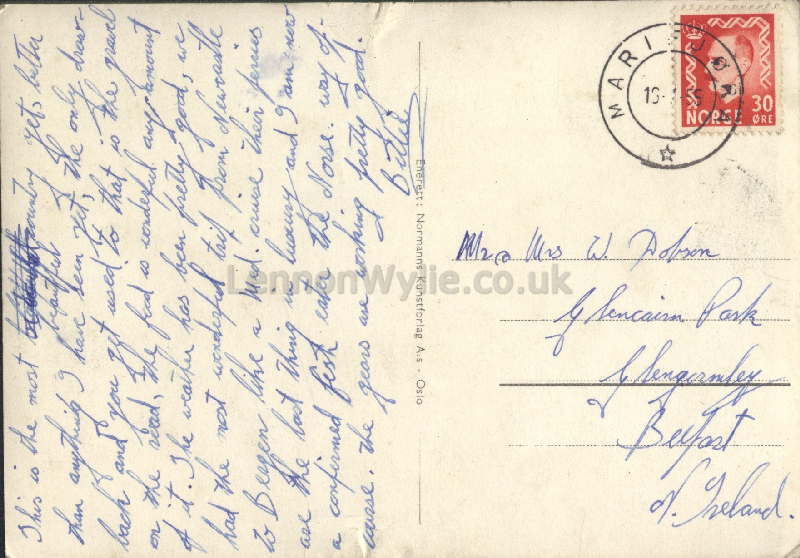 This is the most country gets better
than anything I have seen yet, the only draw-
back and you get used to that is the gravel
on the road, the food is wonderful any amount
of it. The weather has been pretty good, we
had the most wonderful trip from Newcastle
to Bergen like a Med. cruise their ferries
are the last thing in luxury and I am now
a confirmed fish eater the Norse way of
course. The gears are working pretty good.
Billie
Enerett: Normanns Kunstforlag A.s - Oslo
MARIFJØR
NORGE 30 ØRE
Mr & Mrs W. Dobson
Glencairn Park
Glengormley
Belfast
N. Ireland.
LennonWylie.co.uk